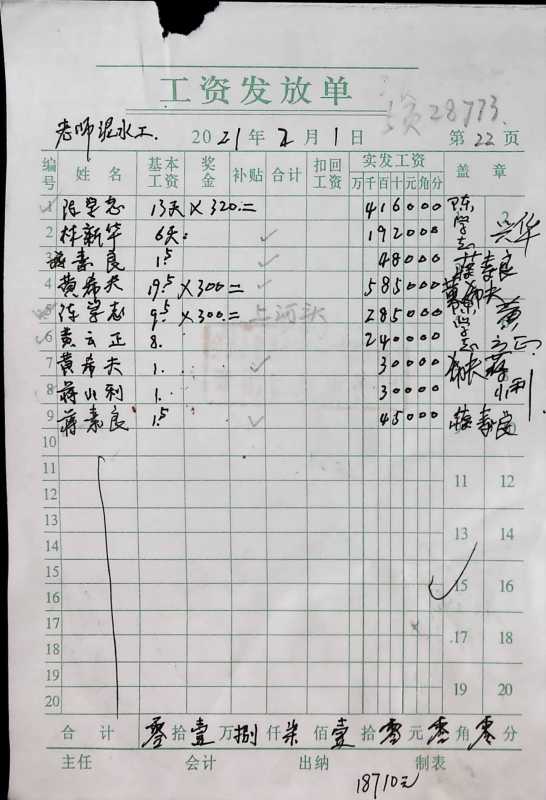 工资发放单
资28773.
老师泥水工.
2021年2月1日 第22页
编号 姓名 基本工资 奖金 补贴 合计 扣回工资 实发工资 万千百十元角分 盖章
1 陈学志 13天×320.= 416000
2 林新华 6天. 192000
3 蒋素良 1.5 48000 蒋素良
4 黄希夫 19.5×300= 585000 黄希夫
5 陈学志 9.5×300.= 上河头 285000 陈学志
6 黄云正 8. 240000 黄云正
7 黄希夫 1. 30000
8 蒋小利 1. 30000
9 蒋素良 1.5 45000 蒋素良
10
11 11 12
12
13 13 14
14
15 15 16
16
17 17 18
18
19 19 20
20
合计 零拾壹万捌仟柒佰壹拾零元零角零分
主任 会计 出纳 制表
18710元